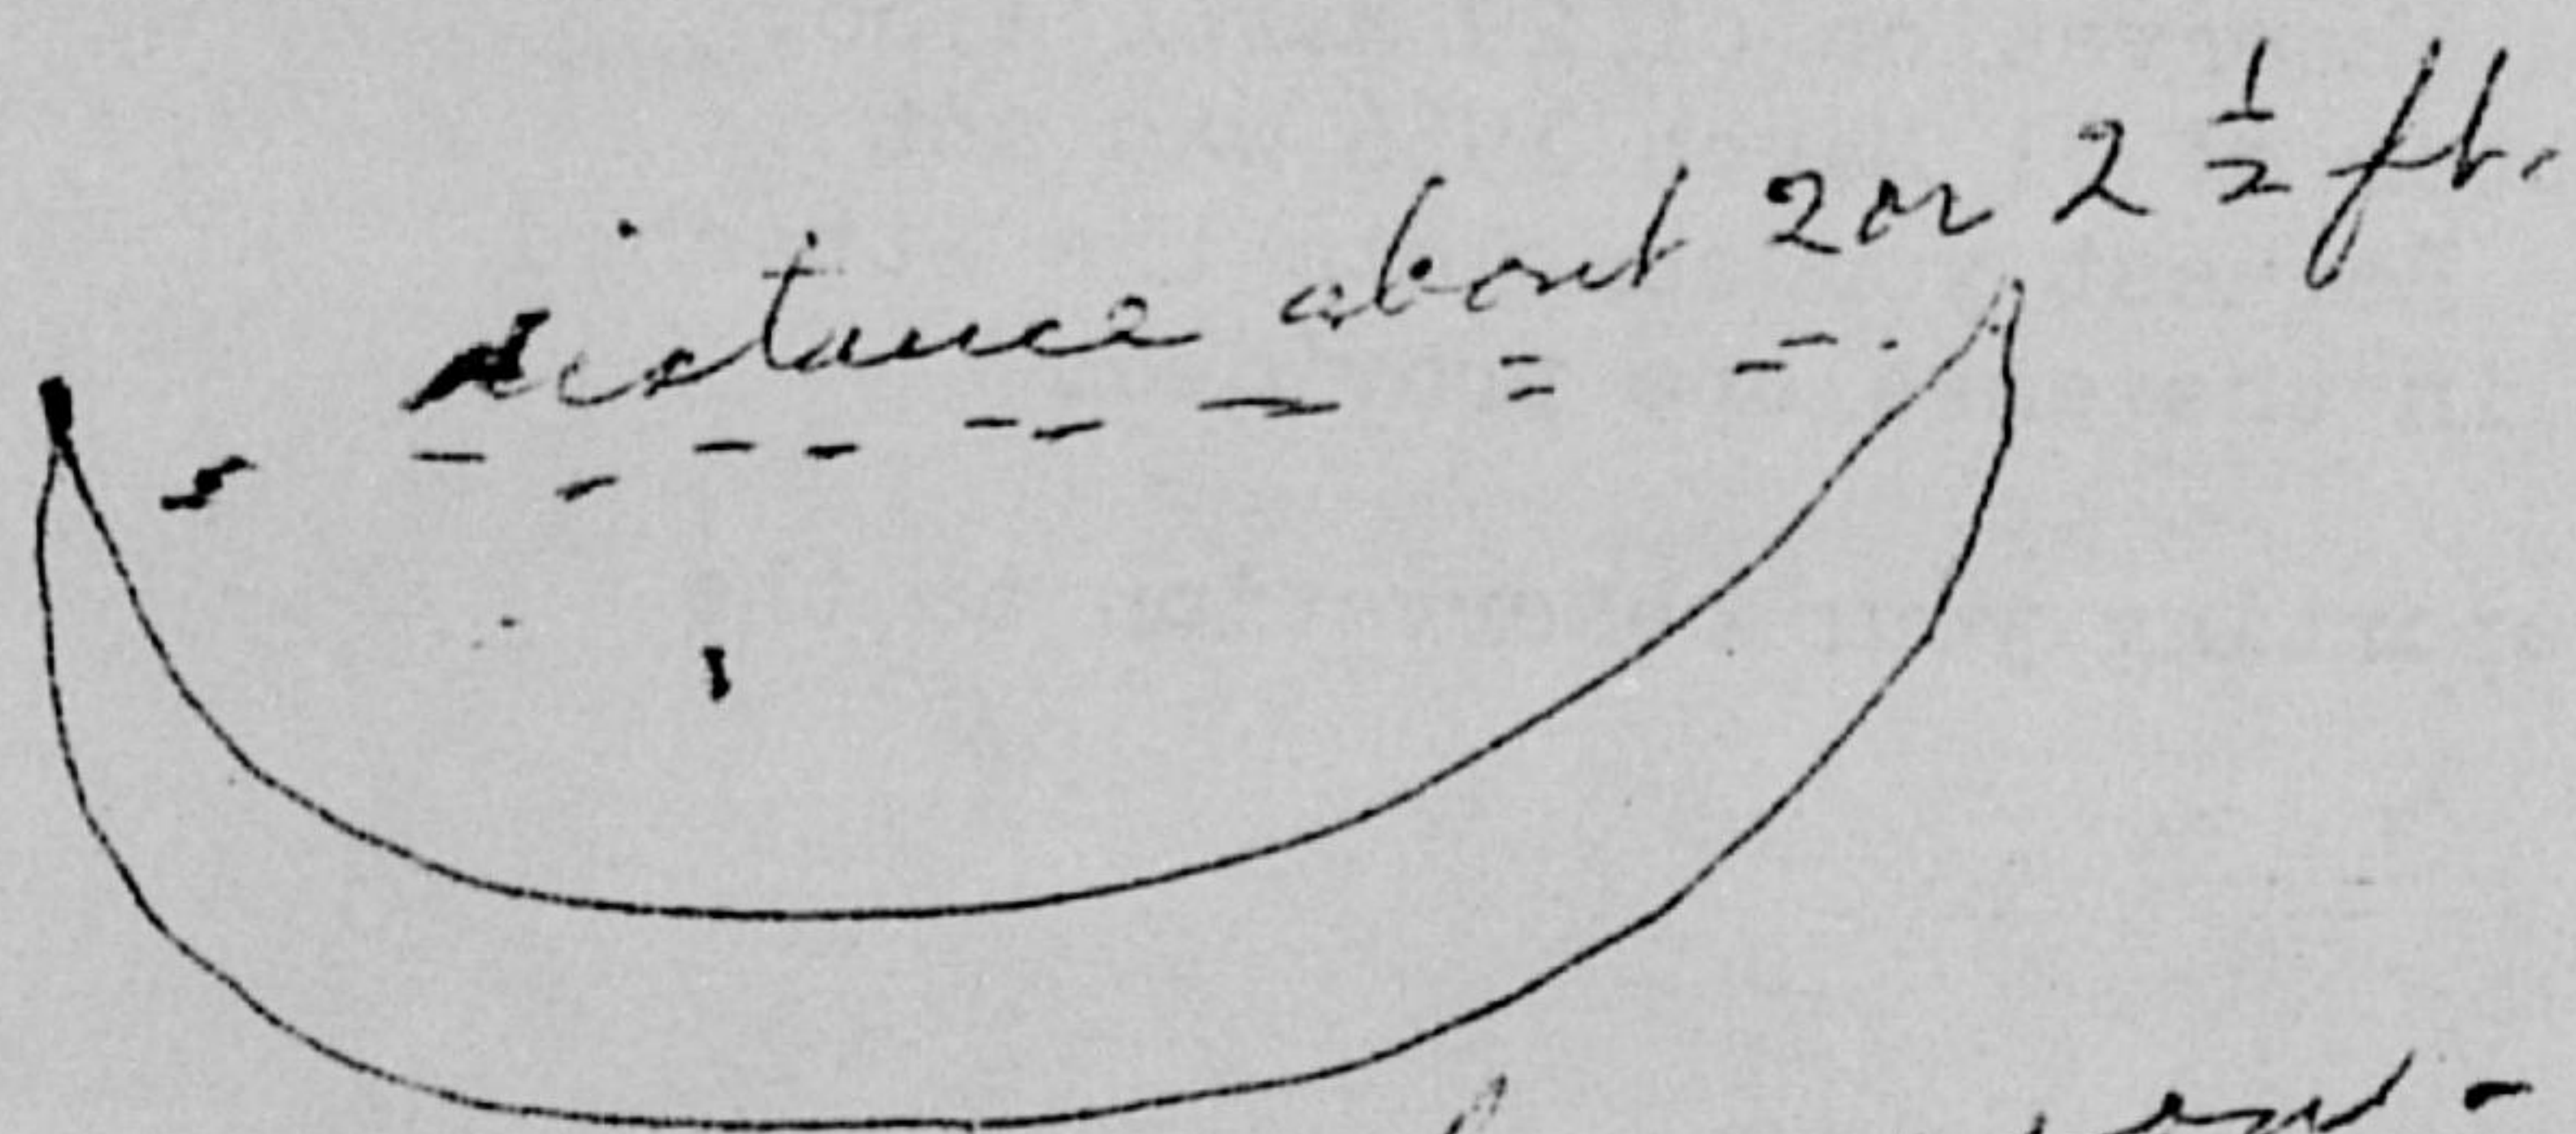 distance about 2 or 2 1/2 ft.